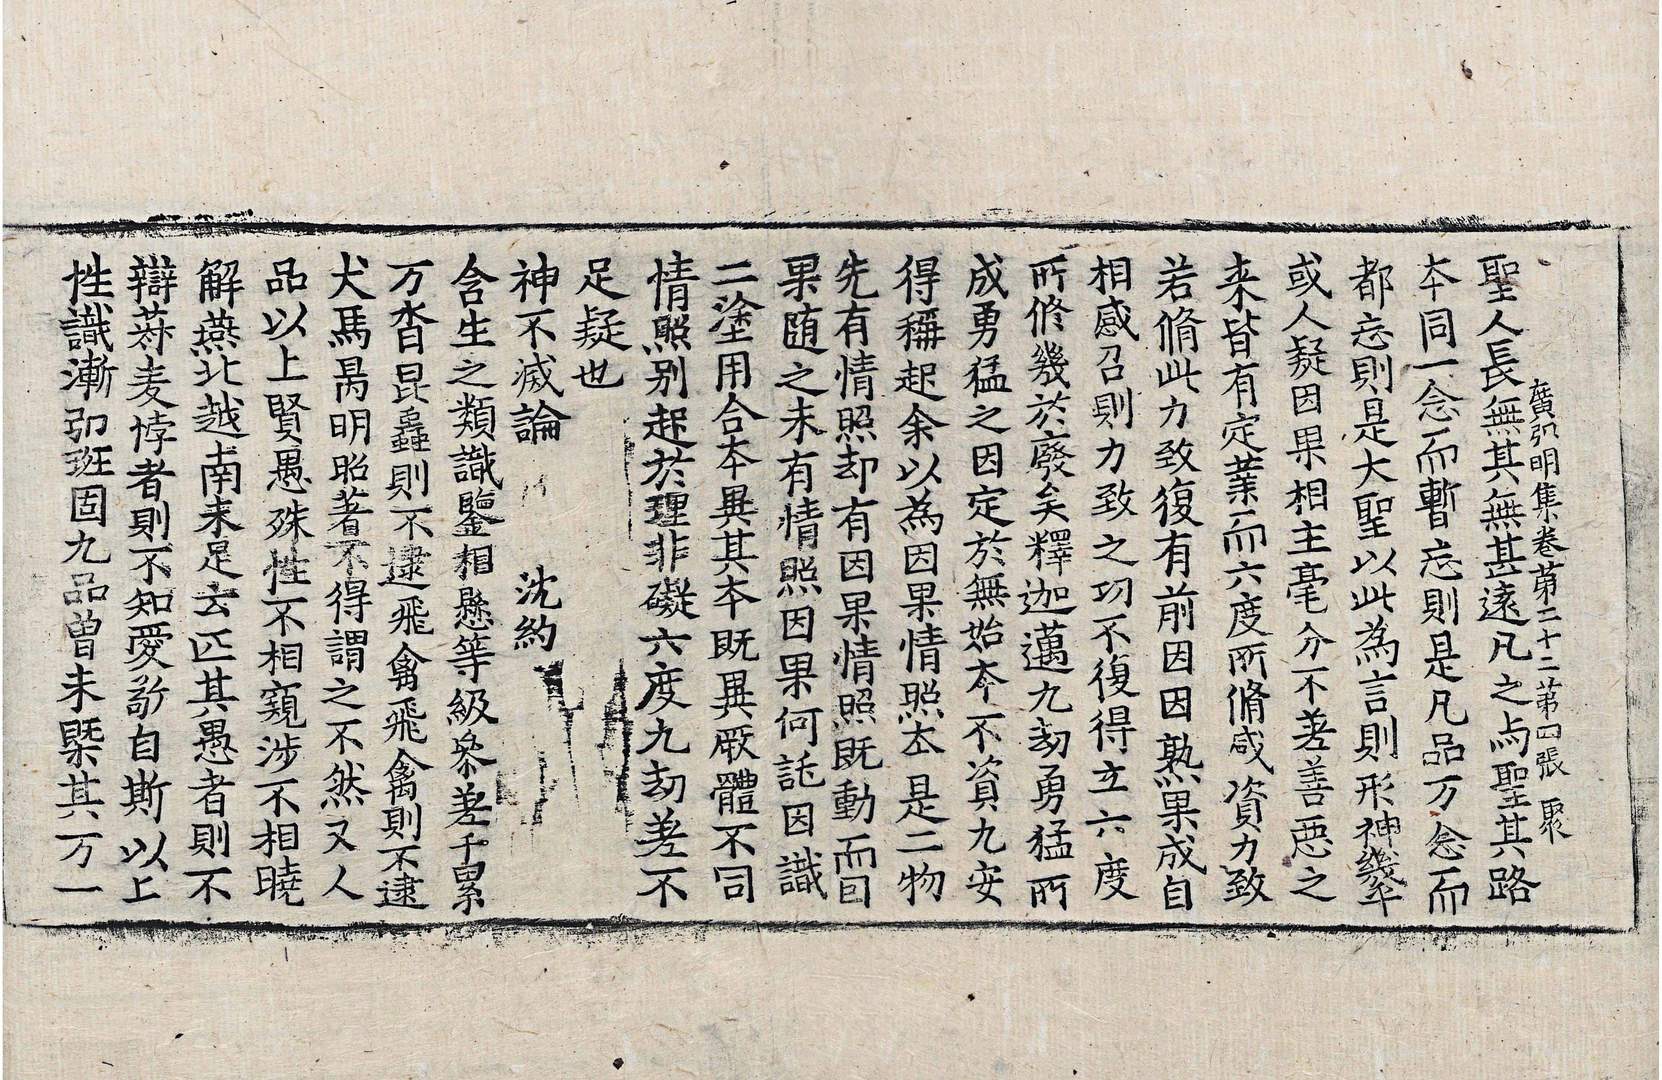 廣弘明集卷苐二十二苐四張 聚
聖人長無其無甚遠凡之与聖其路
夲同一念而暫忘則是凡品万念而
都忘則是大聖以此為言則形神幾乎
或人疑因果相主毫分不差善惡之
来皆有定業而六度所脩咸資力致
若脩此力致復有前因因熟果成自
相感召則力致之功不復得立六度
所脩幾於廢矣釋迦邁九劫勇猛所
成勇猛之因定於無始夲不資九安
得稱起余以為因果情照夲是二物
先有情照却有因果情照既動而囙
果随之未有情照因果何託因識
二塗用合夲異其夲既異厥體不同
情照别起於理非礙六度九劫差不
足疑也
神不滅論 沈約
含生之類識鑒相懸等級叅差千累
万沓昆蟲則不逮飛禽飛禽則不逮
犬馬昺明昭著不得謂之不然又人
品以上賢愚殊性不相窺涉不相曉
解燕北越南未足云匹其愚者則不
辯菽麦悖者則不知愛敬自斯以上
性識漸弘班固九品曽未槩其万一